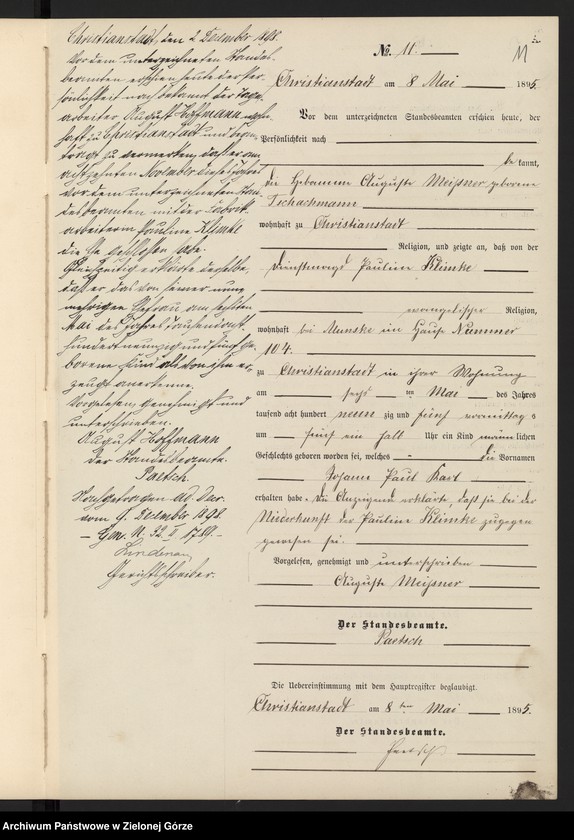 Christianstadt, den 2 Dezember 1898.
Vor dem unterzeichneten Standes-
beamten erschien heute der Per-
sönlichkeit nach bekannt der Tage-
arbeiter August Hoffmann wohn-
haft zu Christianstadt und bean-
tragt zu vermerken, daß er am
achtzehnten November dieses Jahres
vor dem unterzeichneten Stan-
desbeamten mit der Fabrik-
arbeiterin Pauline Klimke
die Ehe geschlossen habe.
Gleichzeitig erklärte derselbe,
daß er das von seiner nun-
mehrigen Ehefrau am sechsten
Mai des Jahres tausendacht-
hundertneunzig und fünf ge-
borene Kind als von ihm er-
zeugt anerkenne.
Vorgelesen, genehmigt und
unterschrieben.
August Hoffmann
Der Standesbeamte.
Paetsch.
Nachgetragen
vom 9. Dezember 1898
Lindenau
Gerichtsschreiber.
No. 11.
11
Christianstadt am 8 Mai 1895.
Vor dem unterzeichneten Standesbeamten erschien heute, der
Persönlichkeit nach
be kannt,
die Hebamme Auguste Meißner geborene
Tschachmann
wohnhaft zu Christianstadt
Religion, und zeigte an, daß von der
Dienstmagd Pauline Klimke
evangelischer Religion,
wohnhaft bei Munske im Hause Nummer
104.
zu Christianstadt in ihrer Wohnung
am sechs ten Mai des Jahres
tausend acht hundert neun zig und fünf vormittag s
um fünf ein halb Uhr ein Kind männ lichen
Geschlechts geboren worden sei, welches die Vornamen
Johann Paul Karl
erhalten habe. Die Anzeigende erklärte, daß sie bei der
Niederkunft der Pauline Klimke zugegen
gewesen sei.
Vorgelesen, genehmigt und unterschrieben
Auguste Meißner
Der Standesbeamte.
Paetsch
Die Uebereinstimmung mit dem Hauptregister beglaubigt.
Christianstadt am 8 ten Mai 1895.
Der Standesbeamte.
Paetsch
Archiwum Państwowe w Zielonej Górze